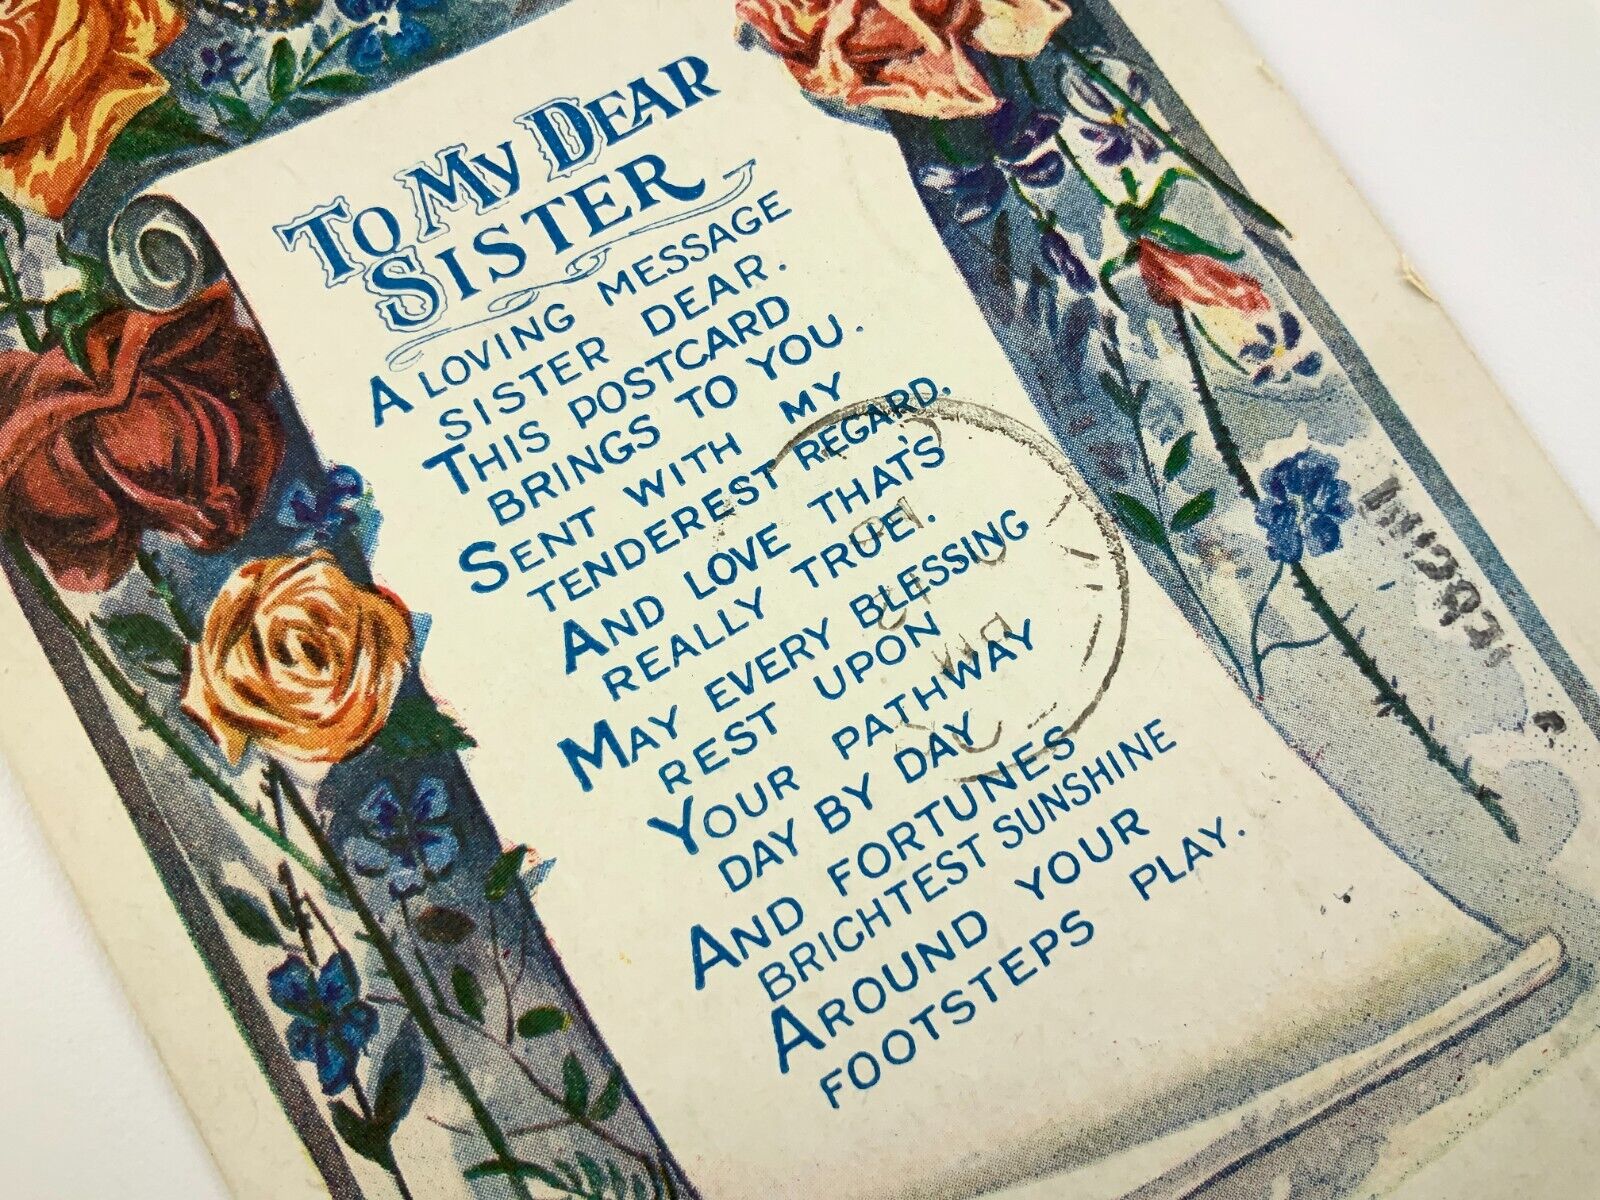 TO MY DEAR
SISTER
A LOVING MESSAGE
SISTER DEAR.
THIS POSTCARD
BRINGS TO YOU.
SENT WITH MY
TENDEREST REGARD.
AND LOVE THAT'S
REALLY TRUE.
MAY EVERY BLESSING
REST UPON
YOUR PATHWAY
DAY BY DAY
AND FORTUNES
BRIGHTEST SUNSHINE
AROUND YOUR
FOOTSTEPS PLAY.